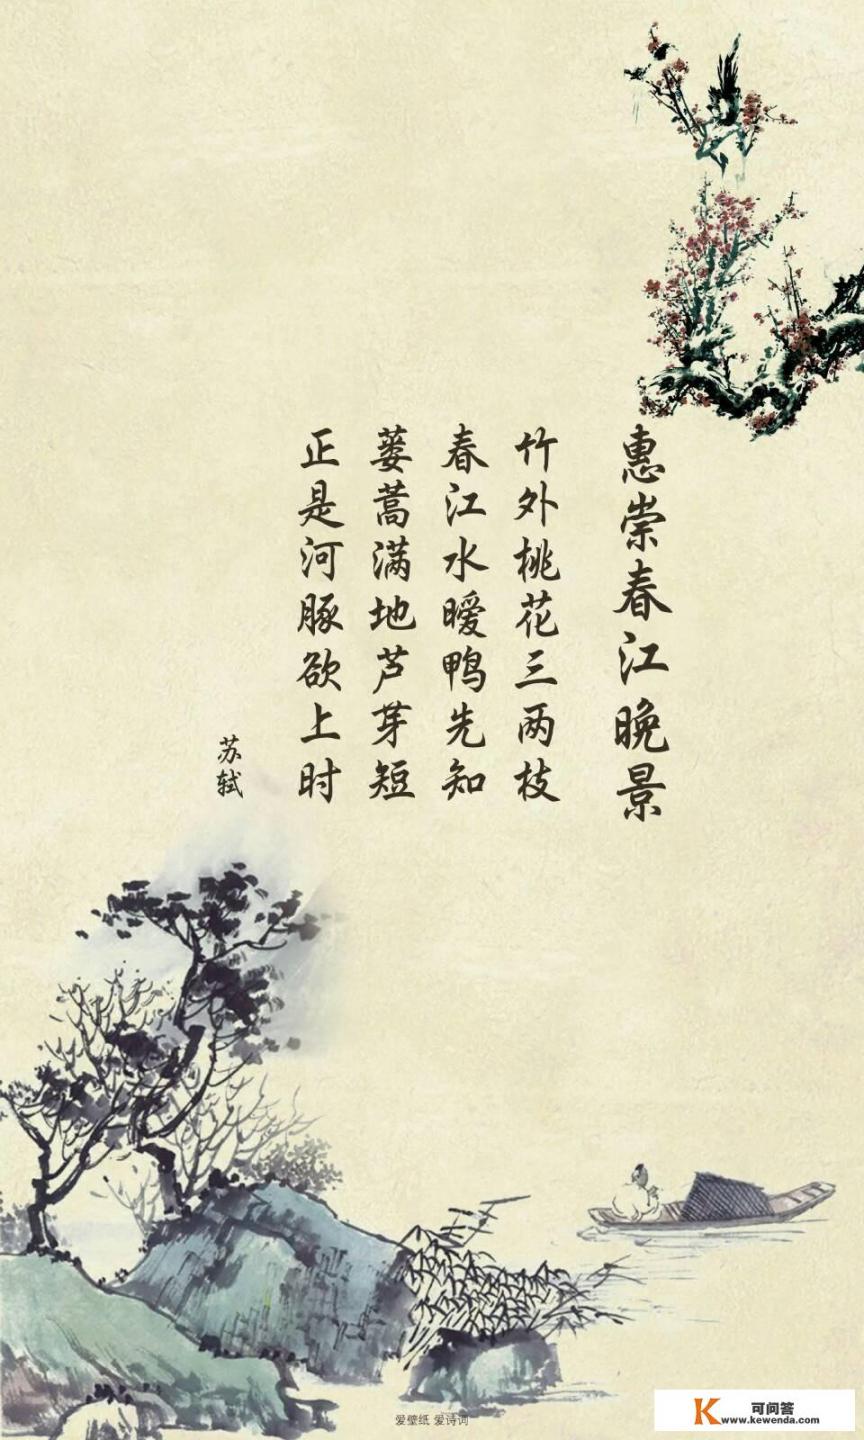 惠崇春江晚景
竹外桃花三两枝
春江水暧鸭先知
蒌蒿满地芦芽短
正是河豚欲上时
苏轼
爱壁纸 爱诗词
K 可问答
www.kewenda.com